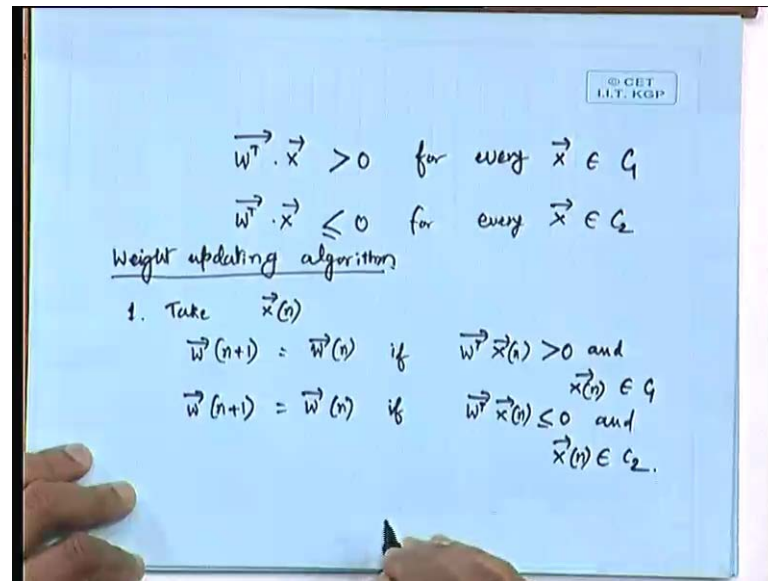 © CET
I.I.T. KGP
w⃗ᵀ . x⃗ > 0 for every x⃗ ∈ C₁
w⃗ᵀ . x⃗ ≤ 0 for every x⃗ ∈ C₂
Weight updating algorithm
1. Take x⃗(n)
w⃗(n+1) = w⃗(n) if w⃗ᵀ x⃗(n) > 0 and
x⃗(n) ∈ C₁
w⃗(n+1) = w⃗(n) if w⃗ᵀ x⃗(n) ≤ 0 and
x⃗(n) ∈ C₂.